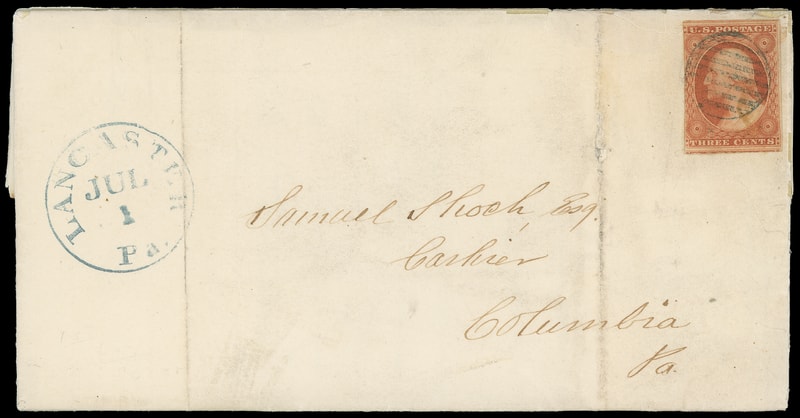 U.S. POSTAGE
THREE CENTS
LANCASTER
JUL
1
Pa.
Samuel Shoch, Esq.
Cashier
Columbia
Pa.